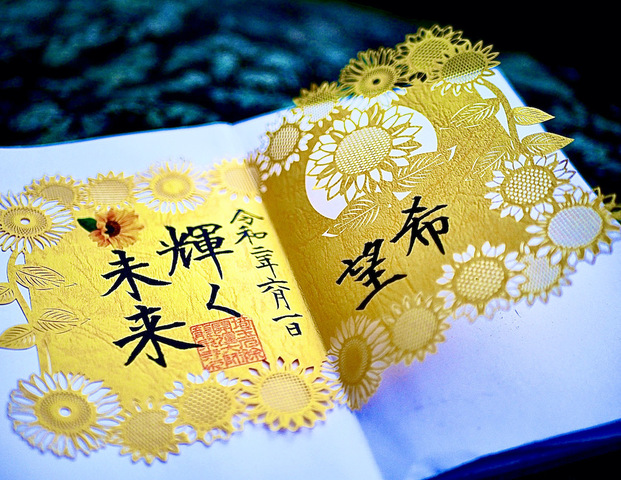 希望
令和二年六月一日
輝く
未来